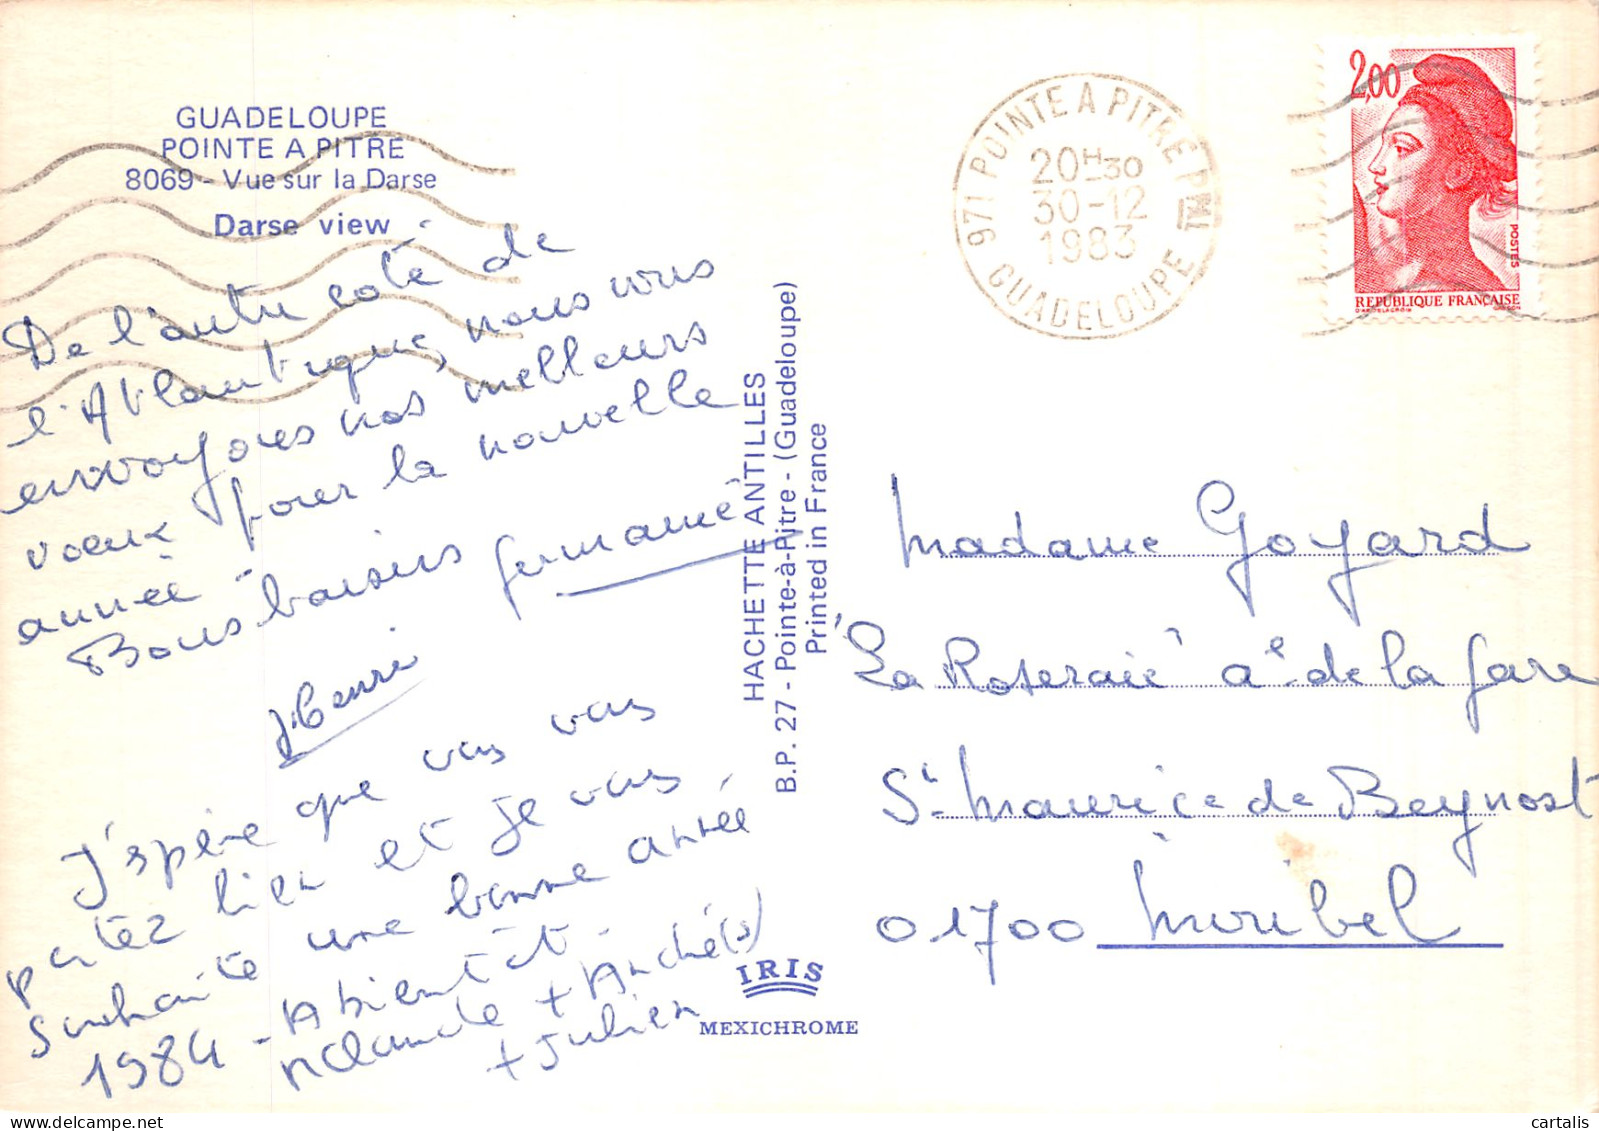 GUADELOUPE
POINTE A PITRE
8069 - Vue sur la Darse
Darse view
De l'autre côté de
l'Atlantique, nous vous
envoyons nos meilleurs
voeux pour la nouvelle
année
Bons baisers Germaine
J. Henri
J'espère que vous vous
portez bien et je vous
souhaite une bonne année
1984 - A bientôt.
+ André(s)
+ Julien
HACHETTE ANTILLES
B.P. 27 - Pointe-à-Pitre - (Guadeloupe)
Printed in France
IRIS
MEXICHROME
971 POINTE A PITRE PPAL
20H30
30-12
1983
GUADELOUPE
2,00
POSTES
REPUBLIQUE FRANÇAISE
D'AP. DELACROIX
Madame Goyard
"La Roseraie" Ae de la Gare
St Maurice de Beynost
01700 Miribel
cartalis